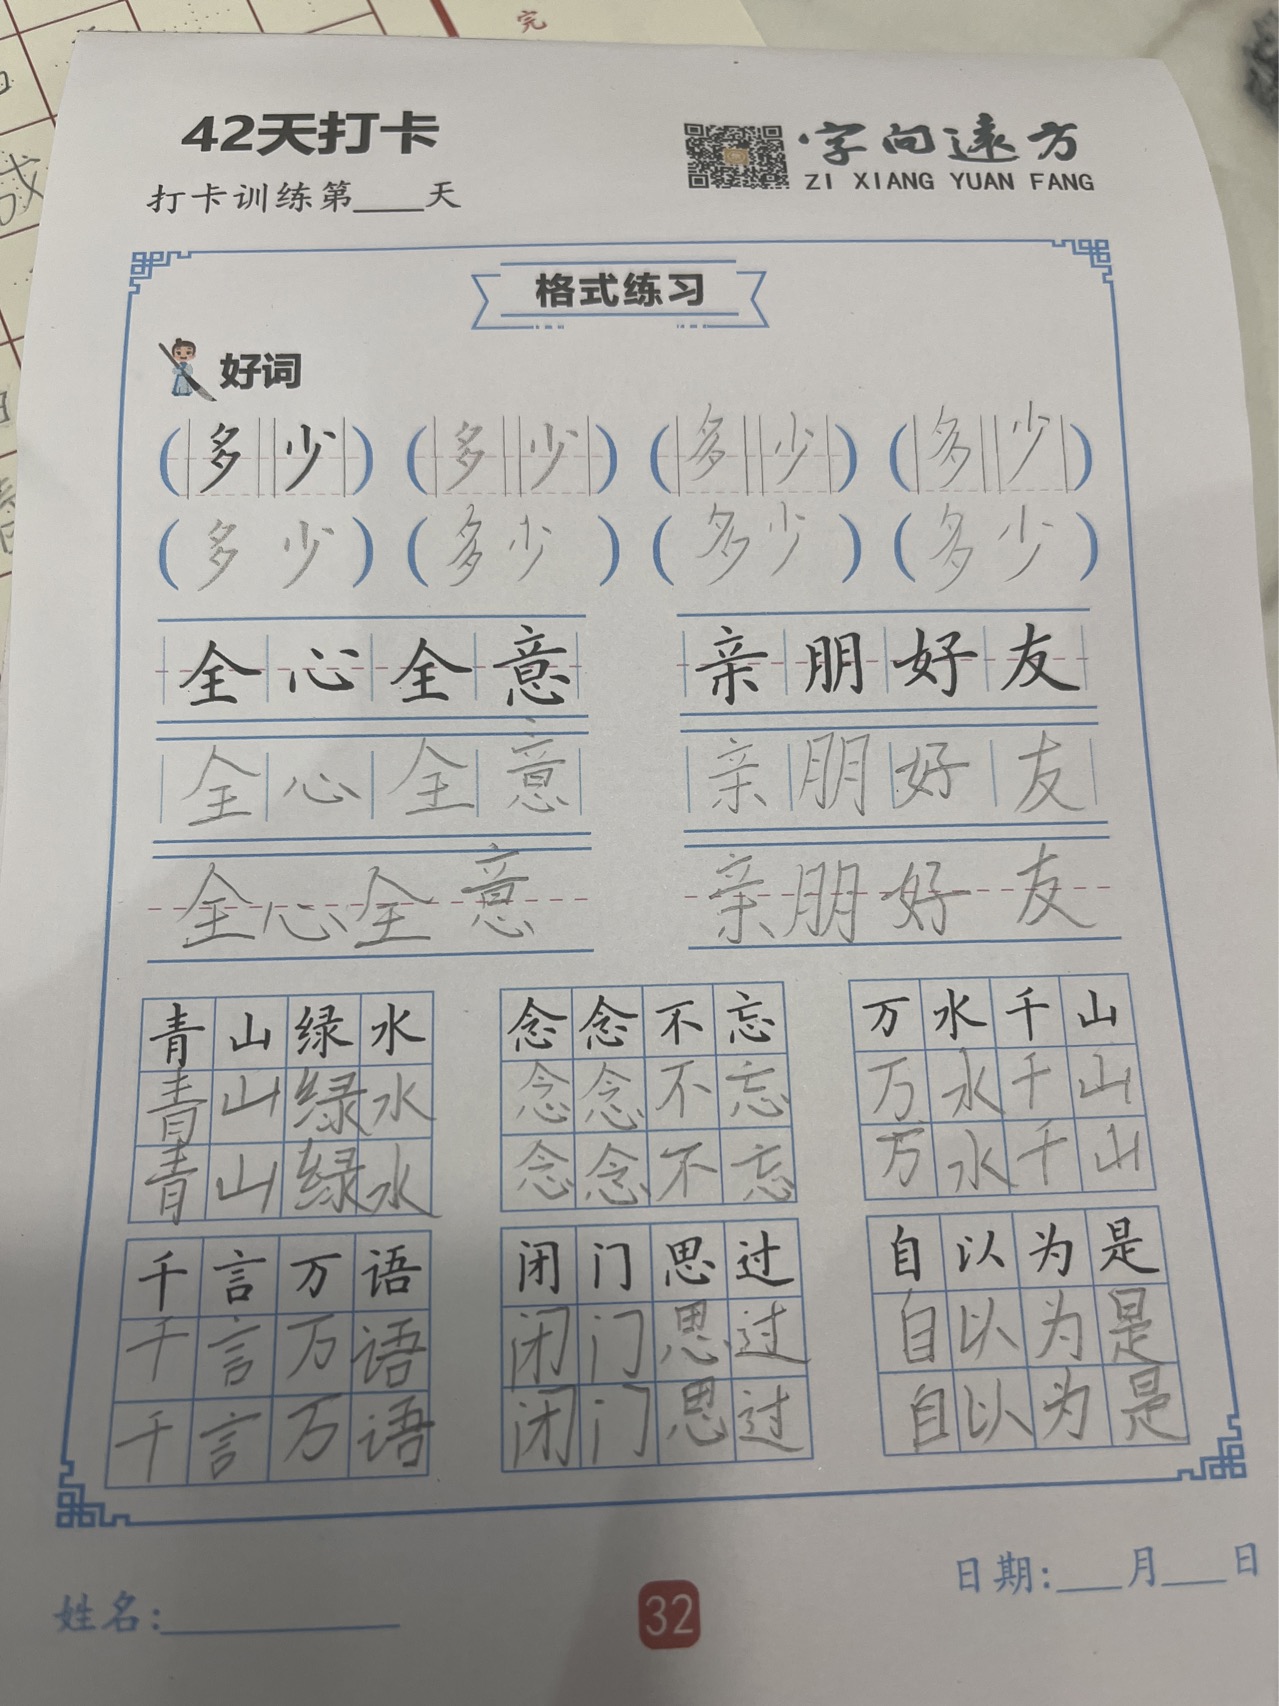 完
成
42天打卡
字向远方
ZI XIANG YUAN FANG
打卡训练第____天
格式练习
好词
(多少) (多少) (多少) (多少)
(多少) (多少) (多少) (多少)
全心全意 亲朋好友
全心全意 亲朋好友
全心全意 亲朋好友
青山绿水 念念不忘 万水千山
青山绿水 念念不忘 万水千山
青山绿水 念念不忘 万水千山
千言万语 闭门思过 自以为是
千言万语 闭门思过 自以为是
千言万语 闭门思过 自以为是
日期:___月___日
姓名:____________
32